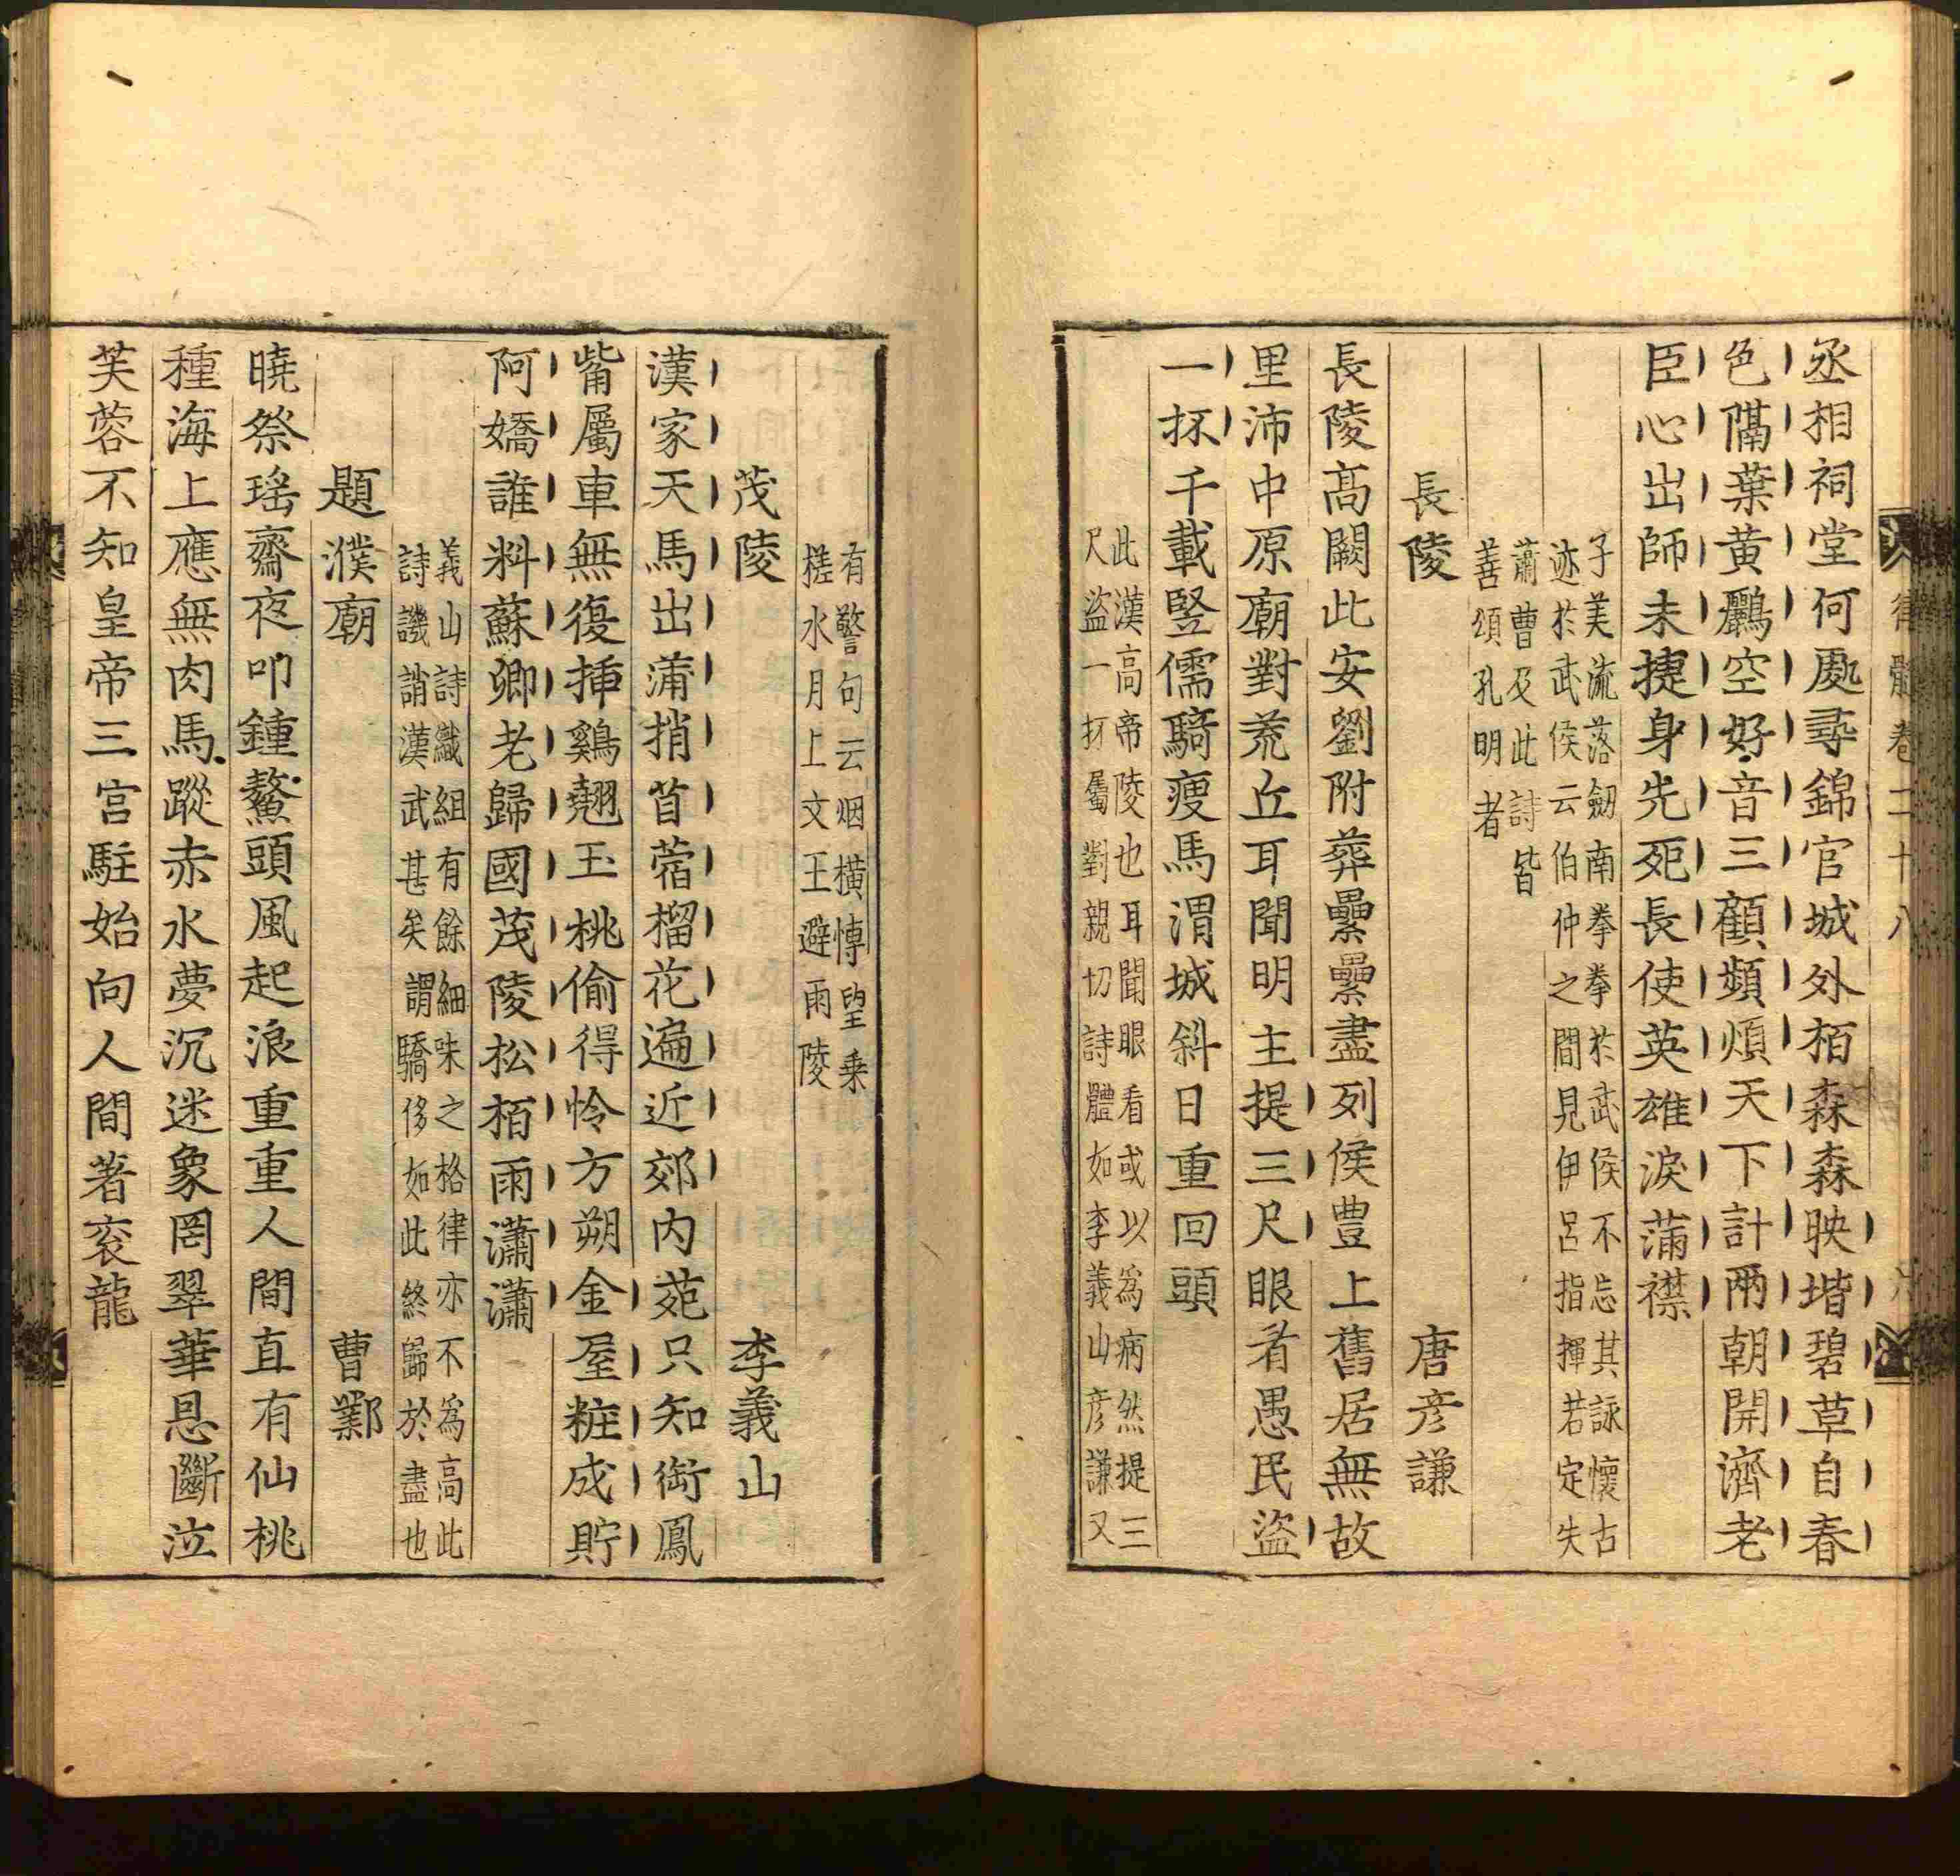 律髓卷二十八
丞相祠堂何處尋錦官城外栢森森映堦碧草自春
色隔葉黃鸝空好音三顧頻煩天下計兩朝開濟老
臣心出師未捷身先死長使英雄淚滿襟
子美流落劒南拳拳於武侯不忘其詠懷古
迹於武侯云伯仲之間見伊呂指揮若定失
蕭曹及此詩皆
善頌孔明者
長陵 唐彥謙
長陵高闕此安劉附葬纍纍盡列侯豊上舊居無故
里沛中原廟對荒丘耳聞明主提三尺眼看愚民盜
一抔千載豎儒騎瘦馬渭城斜日重回頭
此漢高帝陵也耳聞眼看或以為病然提三
尺盜一抔屬對親切詩體如李義山彥謙又
有警句云烟橫博望乗
槎水月上文王避雨陵
茂陵 李義山
漢家天馬出蒲捎苜蓿榴花遍近郊內苑只知銜鳳
觜屬車無復揷鷄翹玉桃偷得怜方朔金屋粧成貯
阿嬌誰料蘇卿老歸國茂陵松栢雨瀟瀟
義山詩纖組有餘細味之格律亦不為高此
詩譏誚漢武甚矣謂驕侈如此終歸於盡也
題濮廟 曹鄴
曉祭瑤齋夜叩鍾鰲頭風起浪重重人間直有仙桃
種海上應無肉馬蹤赤水夢沉迷象罔翠華恩斷泣
芙蓉不知皇帝三宮駐始向人間著衮龍